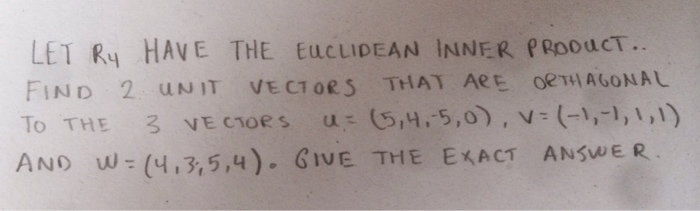 LET R4 HAVE THE EUCLIDEAN INNER PRODUCT..
FIND 2 UNIT VECTORS THAT ARE ORTHAGONAL
TO THE 3 VECTORS u = (5,4,-5,0), V = (-1,-1,1,1)
AND W = (4,3,5,4). GIVE THE EXACT ANSWER.